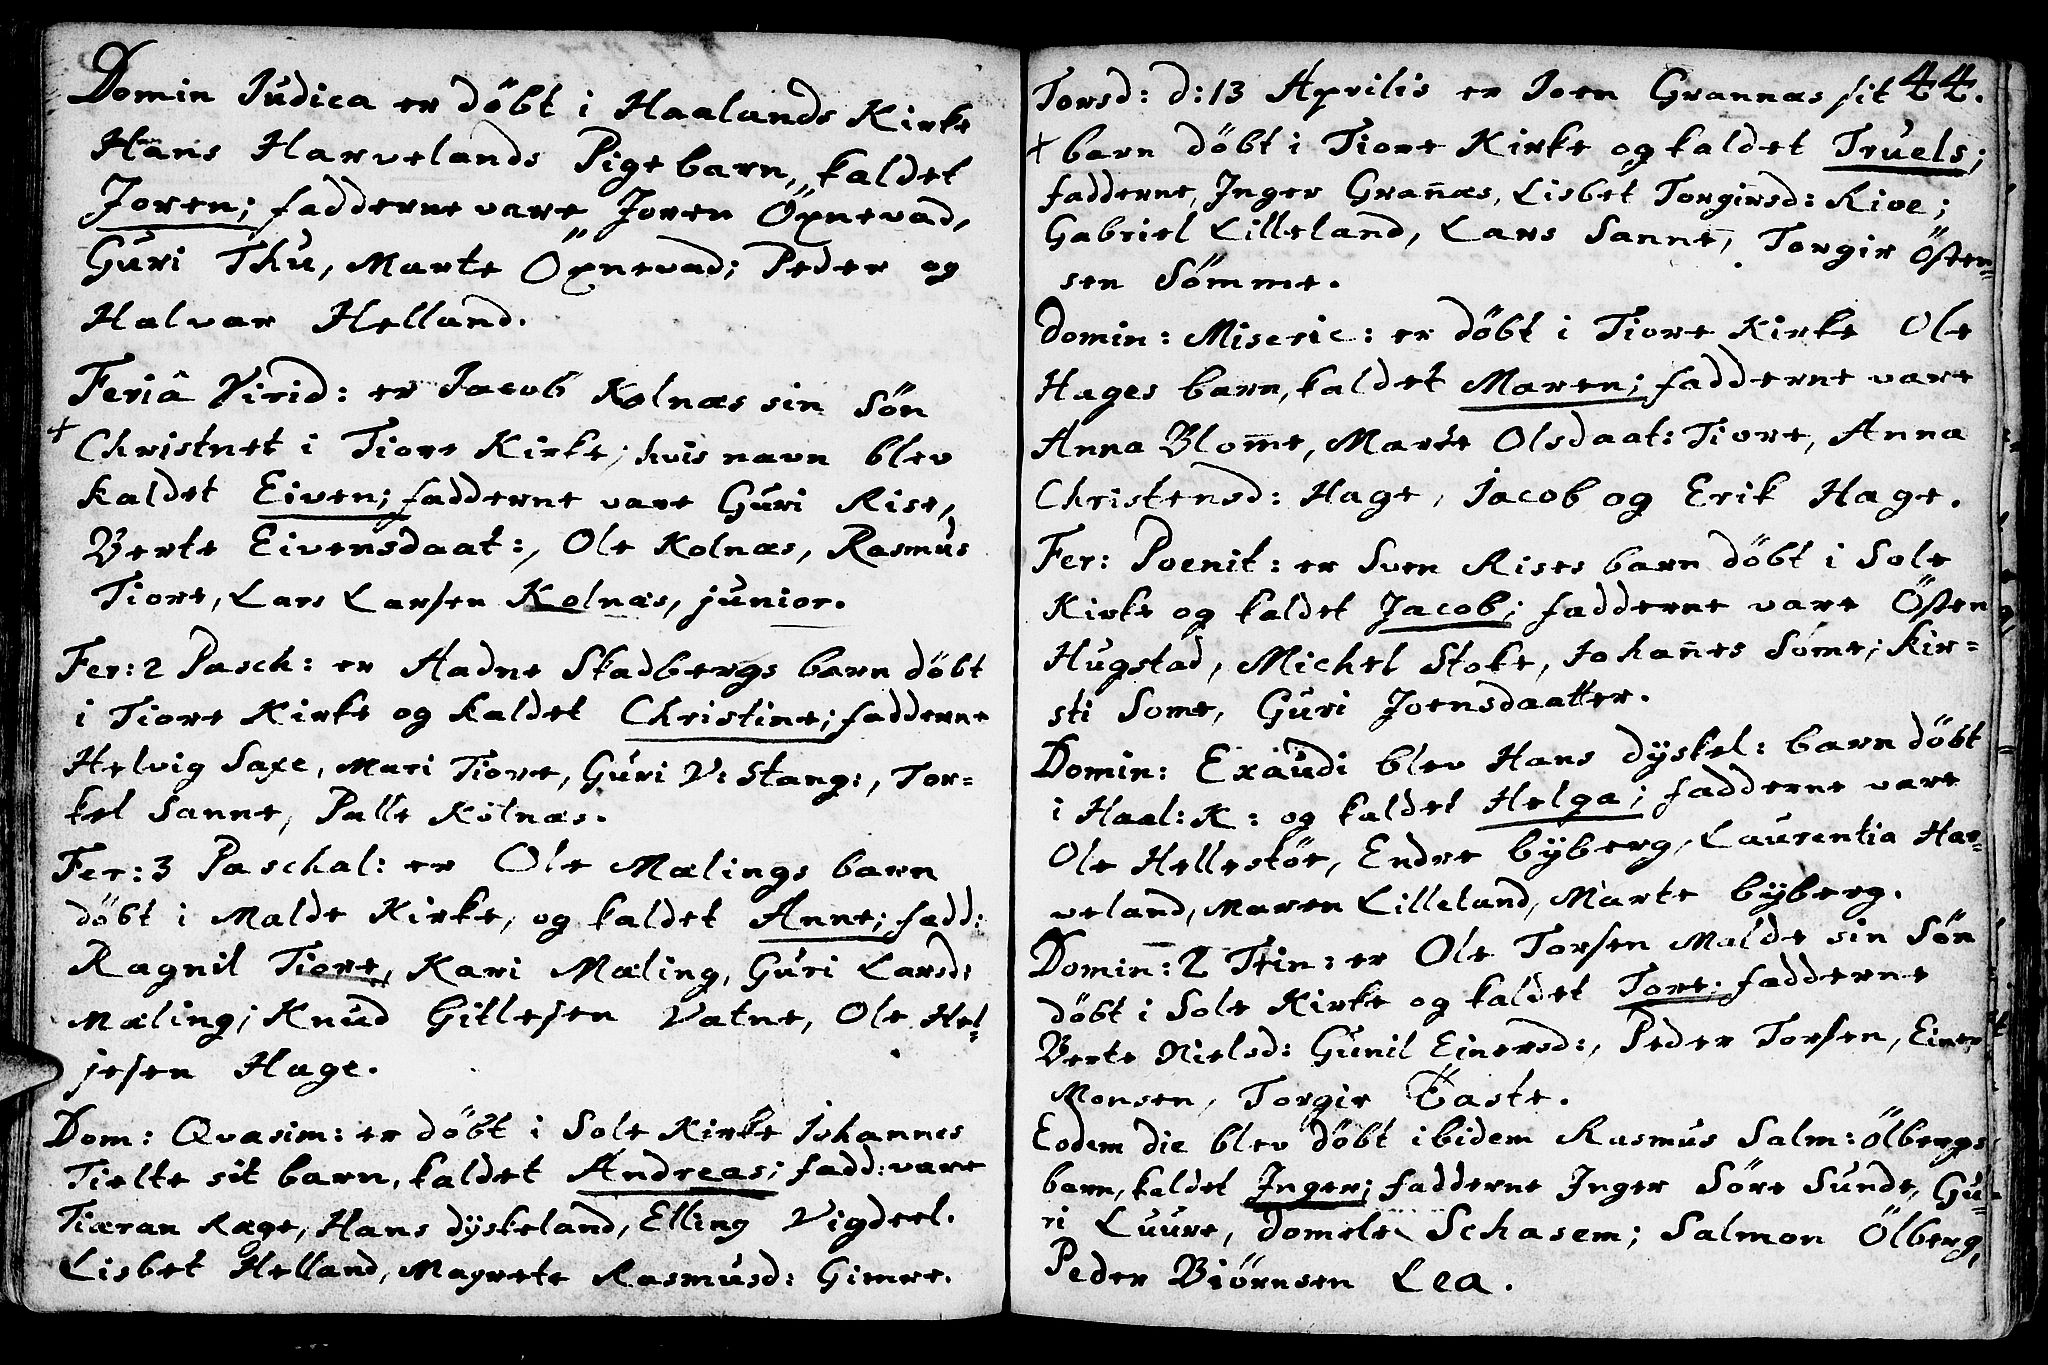 Domin Judica er döbt i Haalands Kirke
Hans Harvelands Pigebarn, kaldet
Joren; fadderne vare Joren Öxnevad,
Guri Thu, Marte Öxnevad; Peder og
Halvar Helland.
Feriâ Virid: er Jacob Kolnæs sin Sön
+ Christnet i Tiore Kirke; hvis navn blev
kaldet Eiven; fadderne vare Guri Rise,
Berte Eivensdaat:, Ole Kolnæs, Rasmus
Tiore, Lars Larsen Kolnæs, junior.
Fer: 2 Pasch: er Aadne Skadbergs barn döbt
i Tiore Kirke og kaldet Christine; fadderne
Helvig Saxe, Mari Tiore, Guri V: Stang:, Tor=
kel Sanne, Palle Kolnæs.
Fer: 3 Paschal: er Ole Mælings barn
döbt i Malde Kirke, og kaldet Anne; fadd:
Ragnil Tiore, Kari Mæling, Guri Larsd:
Mæling; Knud Gitlesen Vatne, Ole Hel=
jesen Hage.
Dom: Qvasim: er döbt i Sole Kirke Johannes
Tielte sit barn, kaldet Andreas; fadd: vare
Tiæran Ræge, Hans dÿskeland, Elling Vigdeel.
Lisbet Helland, Magrete Rasmusd: Gimre.
44.
Torsd: d: 13 Aprilis er Joen Grannæs sit
+ barn döbt i Tiore Kirke og kaldet Truels;
fadderne, Inger Gran̄æs, Lisbet Torgirsd: Rive;
Gabriel Lilleland, Lars Sanne, Torgir Östen=
sen Sömme.
Domin: Miseric: er döbt i Tiore Kirke Ole
Hages barn, kaldet Maren; fadderne vare
Anna Blom̄e, Marte Olsdaat: Tiore, Anna
Christensd: Hage, Jacob og Erik Hage.
Fer: Poenit: er Sven Rises barn döbt i Sole
Kirke og kaldet Jacob; fadderne vare Östen
Hugstad, Michel Stoke, Johan̄es Söme; Kir=
sti Some, Guri Joensdaatter.
Domin: Exaudi blev Hans dÿskel: barn döbt
i Haal: K: og kaldet Helga; fadderne vare
Ole Hellestöe, Endre bÿberg, Laurentia Har=
veland, Maren Lilleland, Marte bÿberg.
Domin̄: 2 Trin: er Ole Torsen Malde sin Sön
döbt i Sole Kirke og kaldet Tore; fadderne
Berte Nielsd: Gunil Einersd:, Peder Torsen, Einer
Monsen, Torgir Taste.
Eodem die blev döbt ibidem Rasmus Salm: ölbergs
barn, kaldet Inger; fadderne Inger Söre Sunde, Gu=
ri Luure, Schasem; Salmon Ölberg,
Peder Biörnsen Lea.